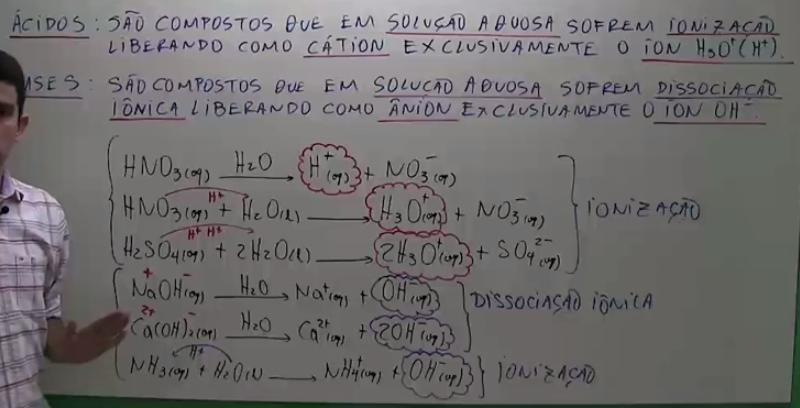 ÁCIDOS: SÃO COMPOSTOS QUE EM SOLUÇÃO AQUOSA SOFREM IONIZAÇÃO
LIBERANDO COMO CÁTION EXCLUSIVAMENTE O ÍON H₃O⁺(H⁺).
ASES: SÃO COMPOSTOS QUE EM SOLUÇÃO AQUOSA SOFREM DISSOCIAÇÃO
IÔNICA LIBERANDO COMO ÂNION EXCLUSIVAMENTE O ÍON OH⁻.
HNO₃(aq) H₂O → H⁺(aq) + NO₃⁻(aq)
H⁺
HNO₃(aq) + H₂O(l) → H₃O⁺(aq) + NO₃⁻(aq) IONIZAÇÃO
H⁺ H⁺
H₂SO₄(aq) + 2H₂O(l) → 2H₃O⁺(aq) + SO₄²⁻(aq)
+ −
NaOH(aq) H₂O → Na⁺(aq) + OH⁻(aq) DISSOCIAÇÃO IÔNICA
2+ −
Ca(OH)₂(aq) H₂O → Ca²⁺(aq) + 2OH⁻(aq)
H⁺
NH₃(aq) + H₂O(l) → NH₄⁺(aq) + OH⁻(aq) } IONIZAÇÃO